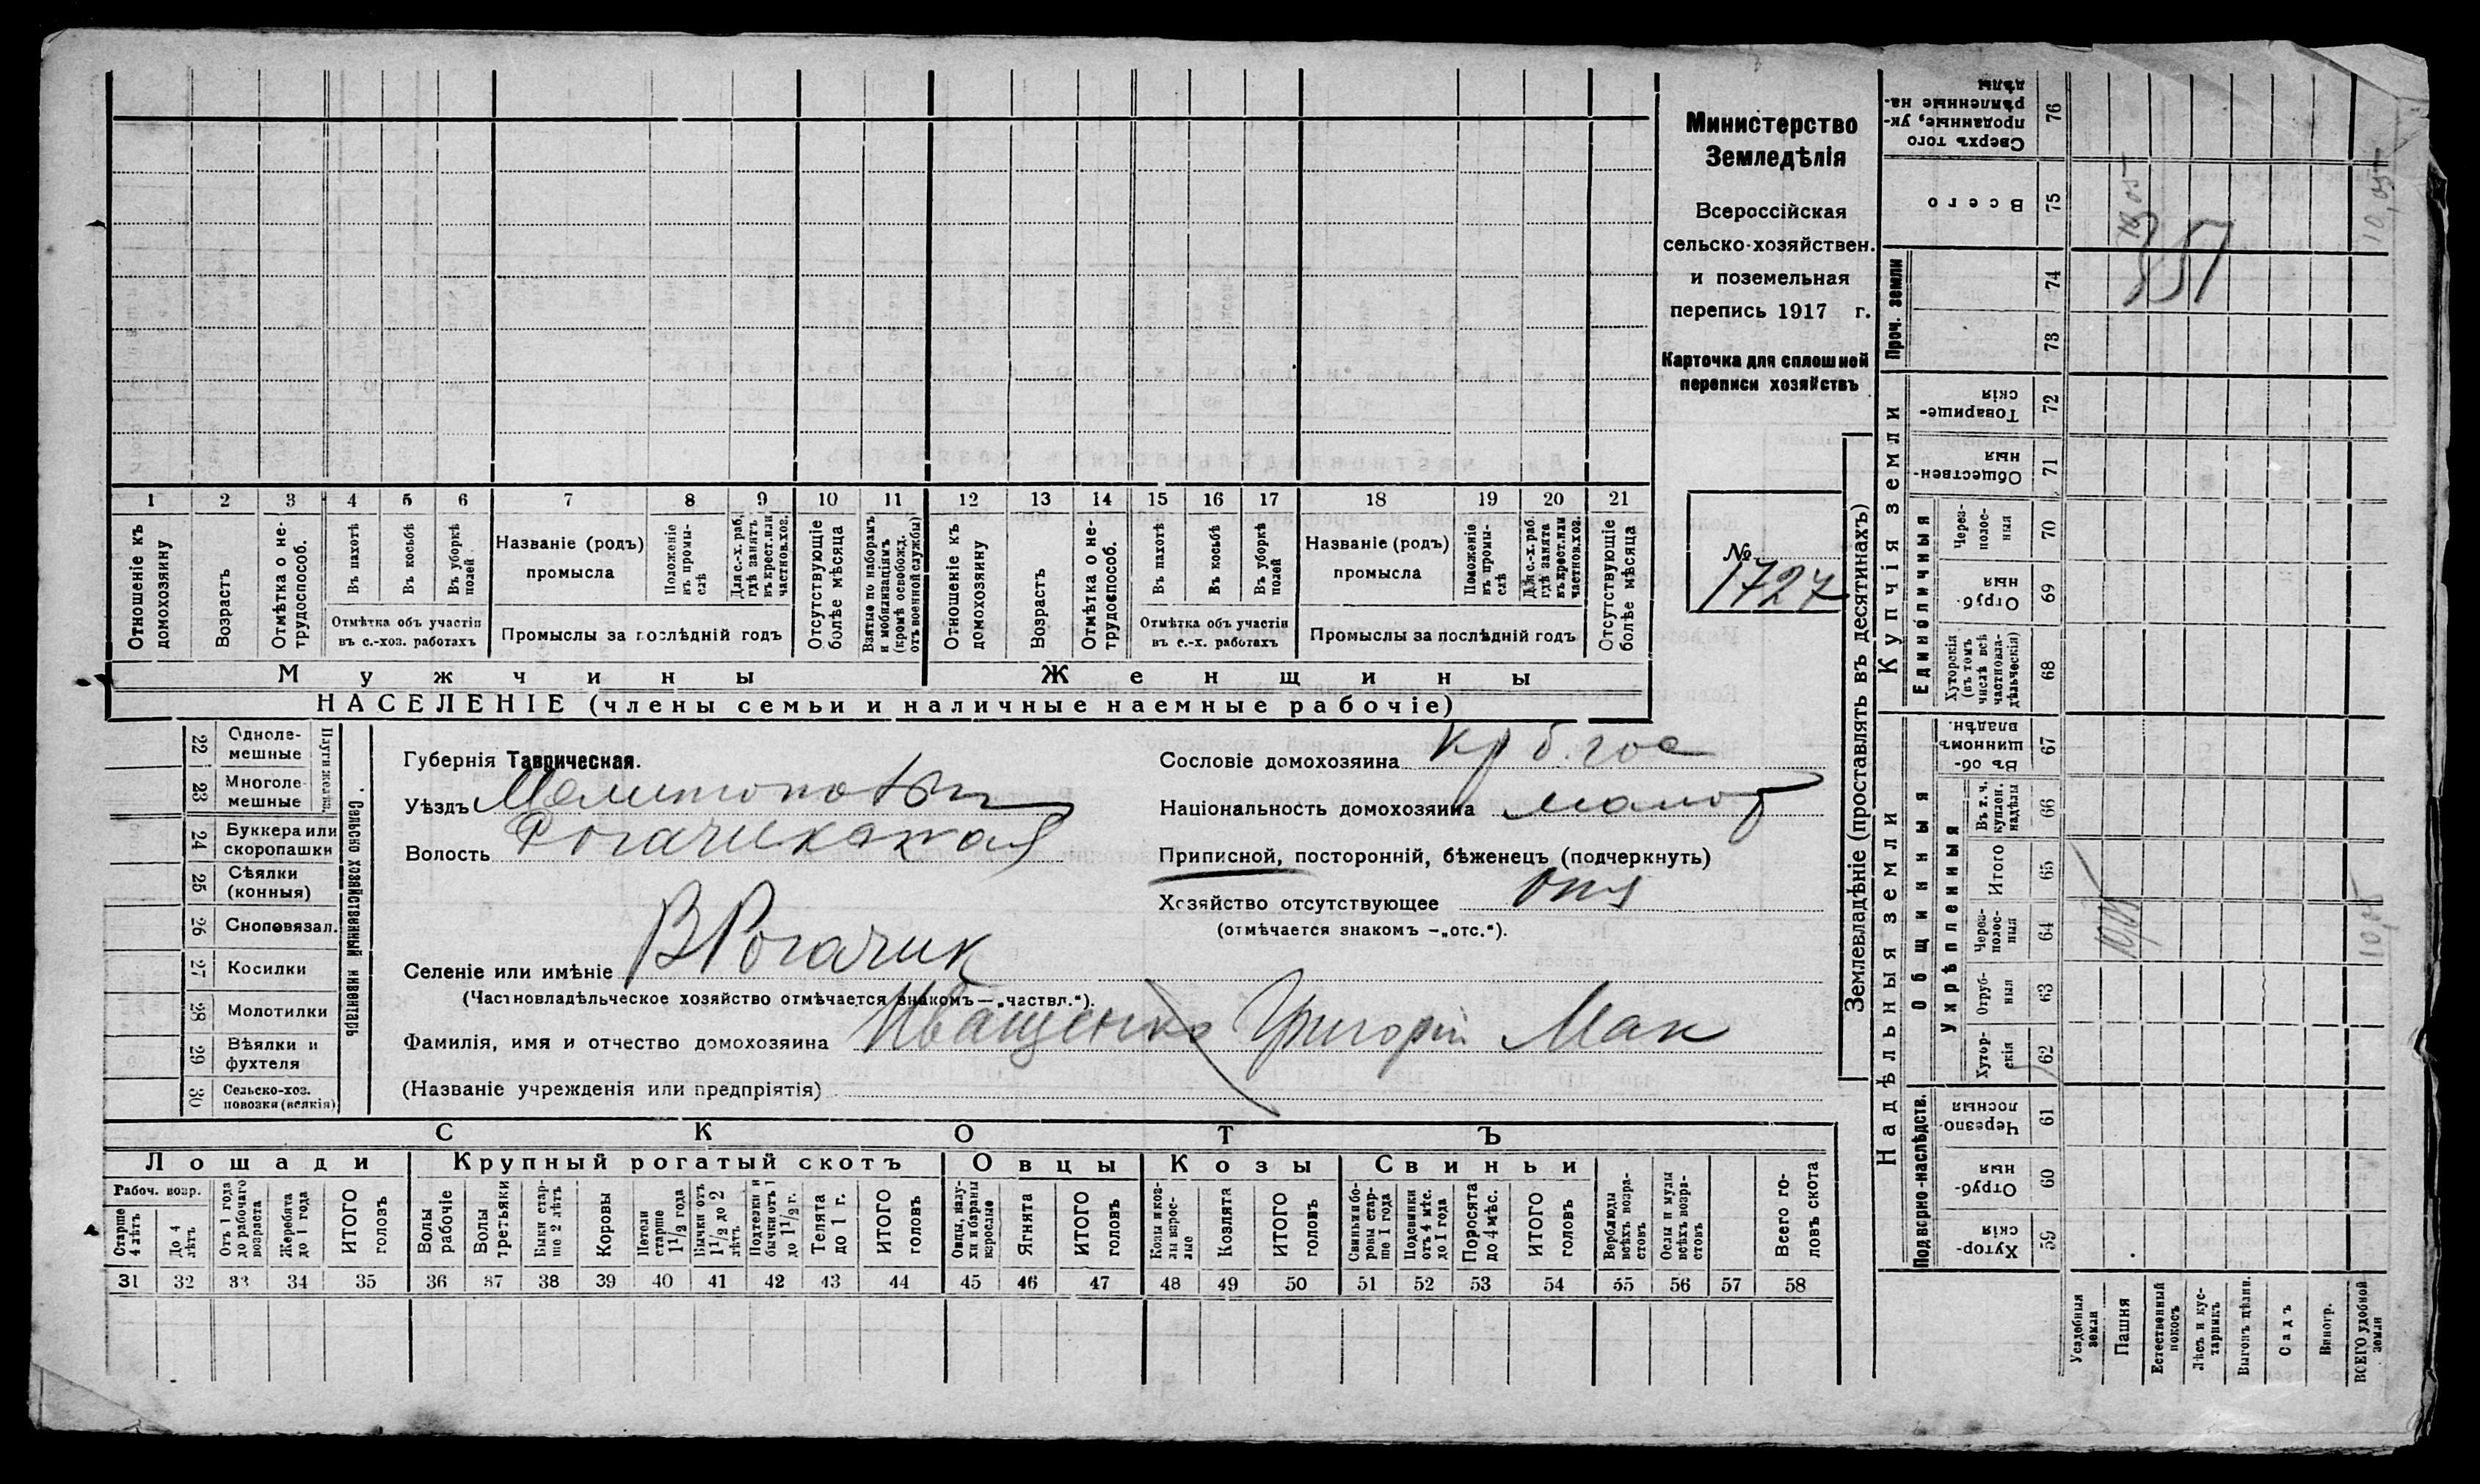 Министерство
Земледѣлія
Всероссійская
сельско-хозяйствен.
и поземельная
перепись 1917 г.
Карточка для сплошной
переписи хозяйствъ
№
1727
1 2 3 4 5 6 7 8 9 10 11 12 13 14 15 16 17 18 19 20 21
Отношеніе къ домохозяину
Возрастъ
Отмѣтка о не-трудоспособ.
Въ пахотѣ
Въ косьбѣ
Въ уборкѣ полей
Отмѣтка объ участіи въ с.-хоз. работахъ
Названіе (родъ) промысла
Положеніе въ промы-слѣ
Для с.-х. раб. гдѣ занятъ въ крест. или частнов. хоз.
Промыслы за послѣдній годъ
Отсутствующіе болѣе мѣсяца
Взятые по наборамъ и мобилизаціямъ (кромѣ освобожд. отъ военной службы)
Отношеніе къ домохозяину
Возрастъ
Отмѣтка о не-трудоспособ.
Въ пахотѣ
Въ косьбѣ
Въ уборкѣ полей
Отмѣтка объ участіи въ с.-х. работахъ
Названіе (родъ) промысла
Положеніе въ промы-слѣ
Для с.-х. раб. гдѣ занята въ крест. или частнов. хоз.
Промыслы за послѣдній годъ
Отсутствующіе болѣе мѣсяца
Мужчины
Женщины
НАСЕЛЕНІЕ (члены семьи и наличные наемные рабочіе)
Сельско хозяйственный инвентарь
22 Одноле-мешные
23 Многоле-мешные
24 Буккера или скоропашки
25 Сѣялки (конныя)
26 Сноповязал.
27 Косилки
28 Молотилки
29 Вѣялки и фухтеля
30 Сельско-хоз. повозки (всякія)
Губернія Таврическая.
Уѣздъ
Волость Рогачикская
Селеніе или имѣніе В Рогачик
(Частновладѣльческое хозяйство отмѣчается знакомъ — „частвл.“).
Фамилія, имя и отчество домохозяина Иващенко Григорій Мак
(Названіе учрежденія или предпріятія)
Сословіе домохозяина кр б. гос
Національность домохозяина малор
Приписной, посторонній, бѣженецъ (подчеркнуть)
Хозяйство отсутствующее
(отмѣчается знакомъ —„отс.“).
СКОТЪ
Лошади
Крупный рогатый скотъ
Овцы
Козы
Свиньи
Рабоч. возр.
Старше 4 лѣтъ
До 4 лѣтъ
Отъ 1 года до рабочаго возраста
Жеребята до 1 года
ИТОГО головъ
Волы рабочіе
Волы третьяки
Быки стар-ше 2 лѣтъ
Коровы
Нетели старше 1½ года
Бычки отъ 1½ до 2 лѣтъ
Подтелки и бычки отъ 1 до 1½ г.
Телята до 1 г.
ИТОГО головъ
Овцы, валу-хи и бараны взрослые
Ягнята
ИТОГО головъ
Козы и коз-лы взрос-лые
Козлята
ИТОГО головъ
Свиньи и бо-ровы стар-ше 1 года
Подсвинки отъ 4 мѣс. до 1 года
Поросята до 4 мѣс.
ИТОГО головъ
Верблюды всѣхъ возра-стовъ
Ослы и мулы всѣхъ возра-стовъ
Всего го-ловъ скота
31 32 33 34 35 36 37 38 39 40 41 42 43 44 45 46 47 48 49 50 51 52 53 54 55 56 57 58
Землевладѣніе (проставлять въ десятинахъ)
Надѣльныя земли
Купчія земли
Проч. земли
Подворно-наслѣдств.
Общинныя
Укрѣпленныя
Единоличныя
59 Хутор-скія
60 Отруб-ныя
61 Черезпо-лосныя
62 Хутор-скія
63 Отруб-ныя
64 Через-полос-ныя
65 Итого
66 Въ т. ч. куплен. надѣлы
67 Въ об-щинномъ владѣн.
68 Хуторскія (въ томъ числѣ всѣ частновла-дѣльческія)
69 Отруб-ныя
70 Через-полос-ныя
71 Обществен-ныя
72 Товарище-скія
73
74
75 Всего
76 Сверхъ того проданные, ук-рѣпленные на-дѣлы
Усадебныя земли
Пашня
Естественный покосъ
Лѣсъ и кус-тарникъ
Выгонъ цѣлин.
Садъ
Виногр.
ВСЕГО удобной земли
10,05
10,05
10,05
10,05
351